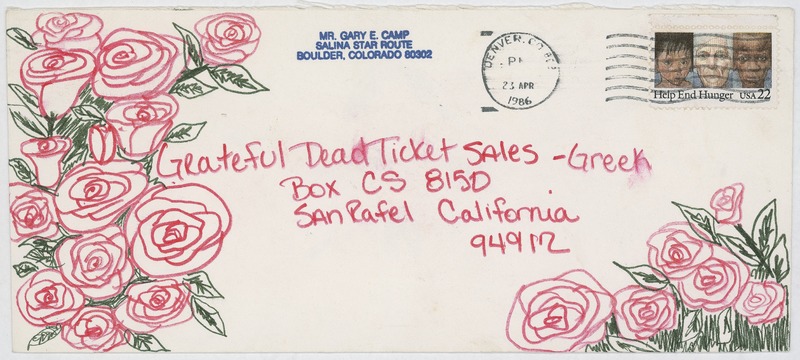 MR. GARY E. CAMP
SALINA STAR ROUTE
BOULDER, COLORADO 80302
DENVER, CO
PM
23 APR
1986
Help End Hunger USA 22
Grateful Dead Ticket Sales - Greek
Box CS 8150
San Rafel California
94912